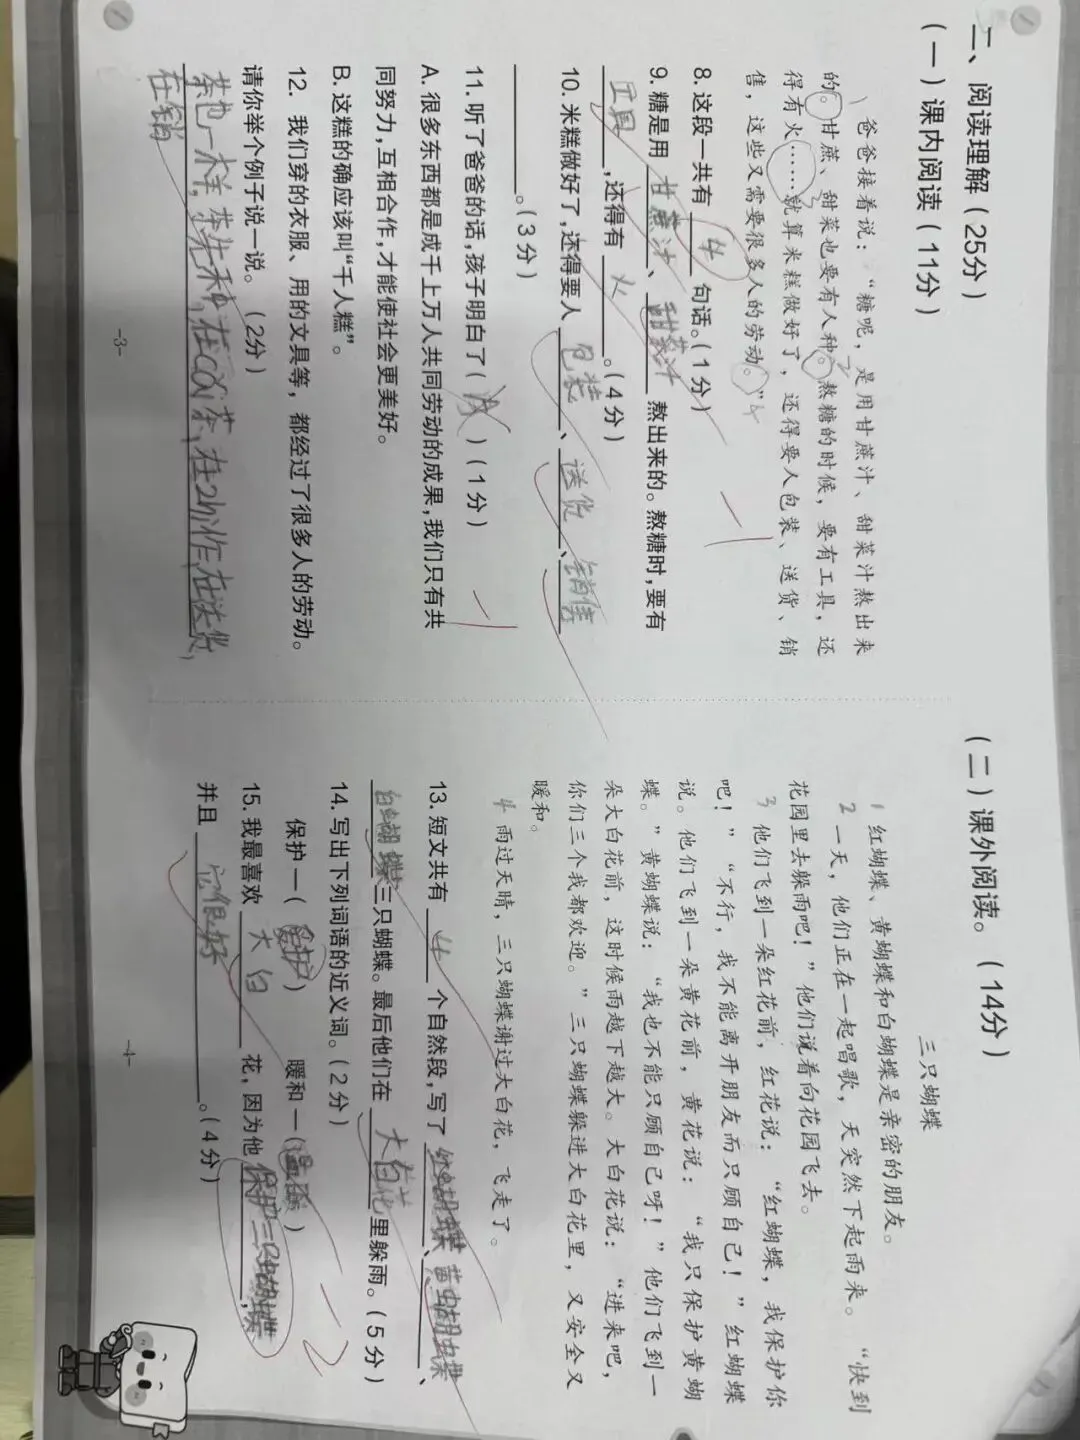 二、阅读理解(25分)
(一)课内阅读(11分)
爸爸接着说：“糖呢，是用甘蔗汁、甜菜汁熬出来
的。甘蔗、甜菜也要有人种。熬糖的时候，要有工具，还
得有火……就算米糕做好了，还得要人包装、送货、销
售，这些又需要很多人的劳动。”
8.这段一共有 4 句话。(1分)
9.糖是用 甘蔗汁、甜菜汁 熬出来的。熬糖时,要有
工具,还得有 火 。(4分)
10.米糕做好了,还得要人 包装、送货、销售
。(3分)
11.听了爸爸的话,孩子明白了( )(1分)
A.很多东西都是成千上万人共同劳动的成果,我们只有共
同努力,互相合作,才能使社会更美好。
B.这糕的确应该叫“千人糕”。
12. 我们穿的衣服、用的文具等，都经过了很多人的劳动。
请你举个例子说一说。(2分)
茶也一样,茶先种,在cǎi茶,在zhì作,在送货,
在销
-3-
(二)课外阅读。(14分)
三只蝴蝶
1 红蝴蝶、黄蝴蝶和白蝴蝶是亲密的朋友。
2 一天，他们正在一起唱歌，天突然下起雨来。“快到
花园里去躲雨吧！”他们说着向花园飞去。
3 他们飞到一朵红花前，红花说：“红蝴蝶，我保护你
吧！”“不行，我不能离开朋友而只顾自己！”红蝴蝶
说。他们飞到一朵黄花前，黄花说：“我只保护黄蝴
蝶。”黄蝴蝶说：“我也不能只顾自己呀！”他们飞到一
朵大白花前，这时候雨越下越大。大白花说：“进来吧，
你们三个我都欢迎。”三只蝴蝶躲进大白花里，又安全又
暖和。
4 雨过天晴，三只蝴蝶谢过大白花，飞走了。
13.短文共有 4 个自然段,写了 红蝴蝶、黄蝴蝶、
白蝴蝶三只蝴蝶。最后他们在 大白花 里躲雨。(5分)
14.写出下列词语的近义词。(2分)
保护—( ) 暖和—( )
15.我最喜欢 大白 花，因为他 保护三只蝴蝶,
并且 它很好 。(4分)
-4-